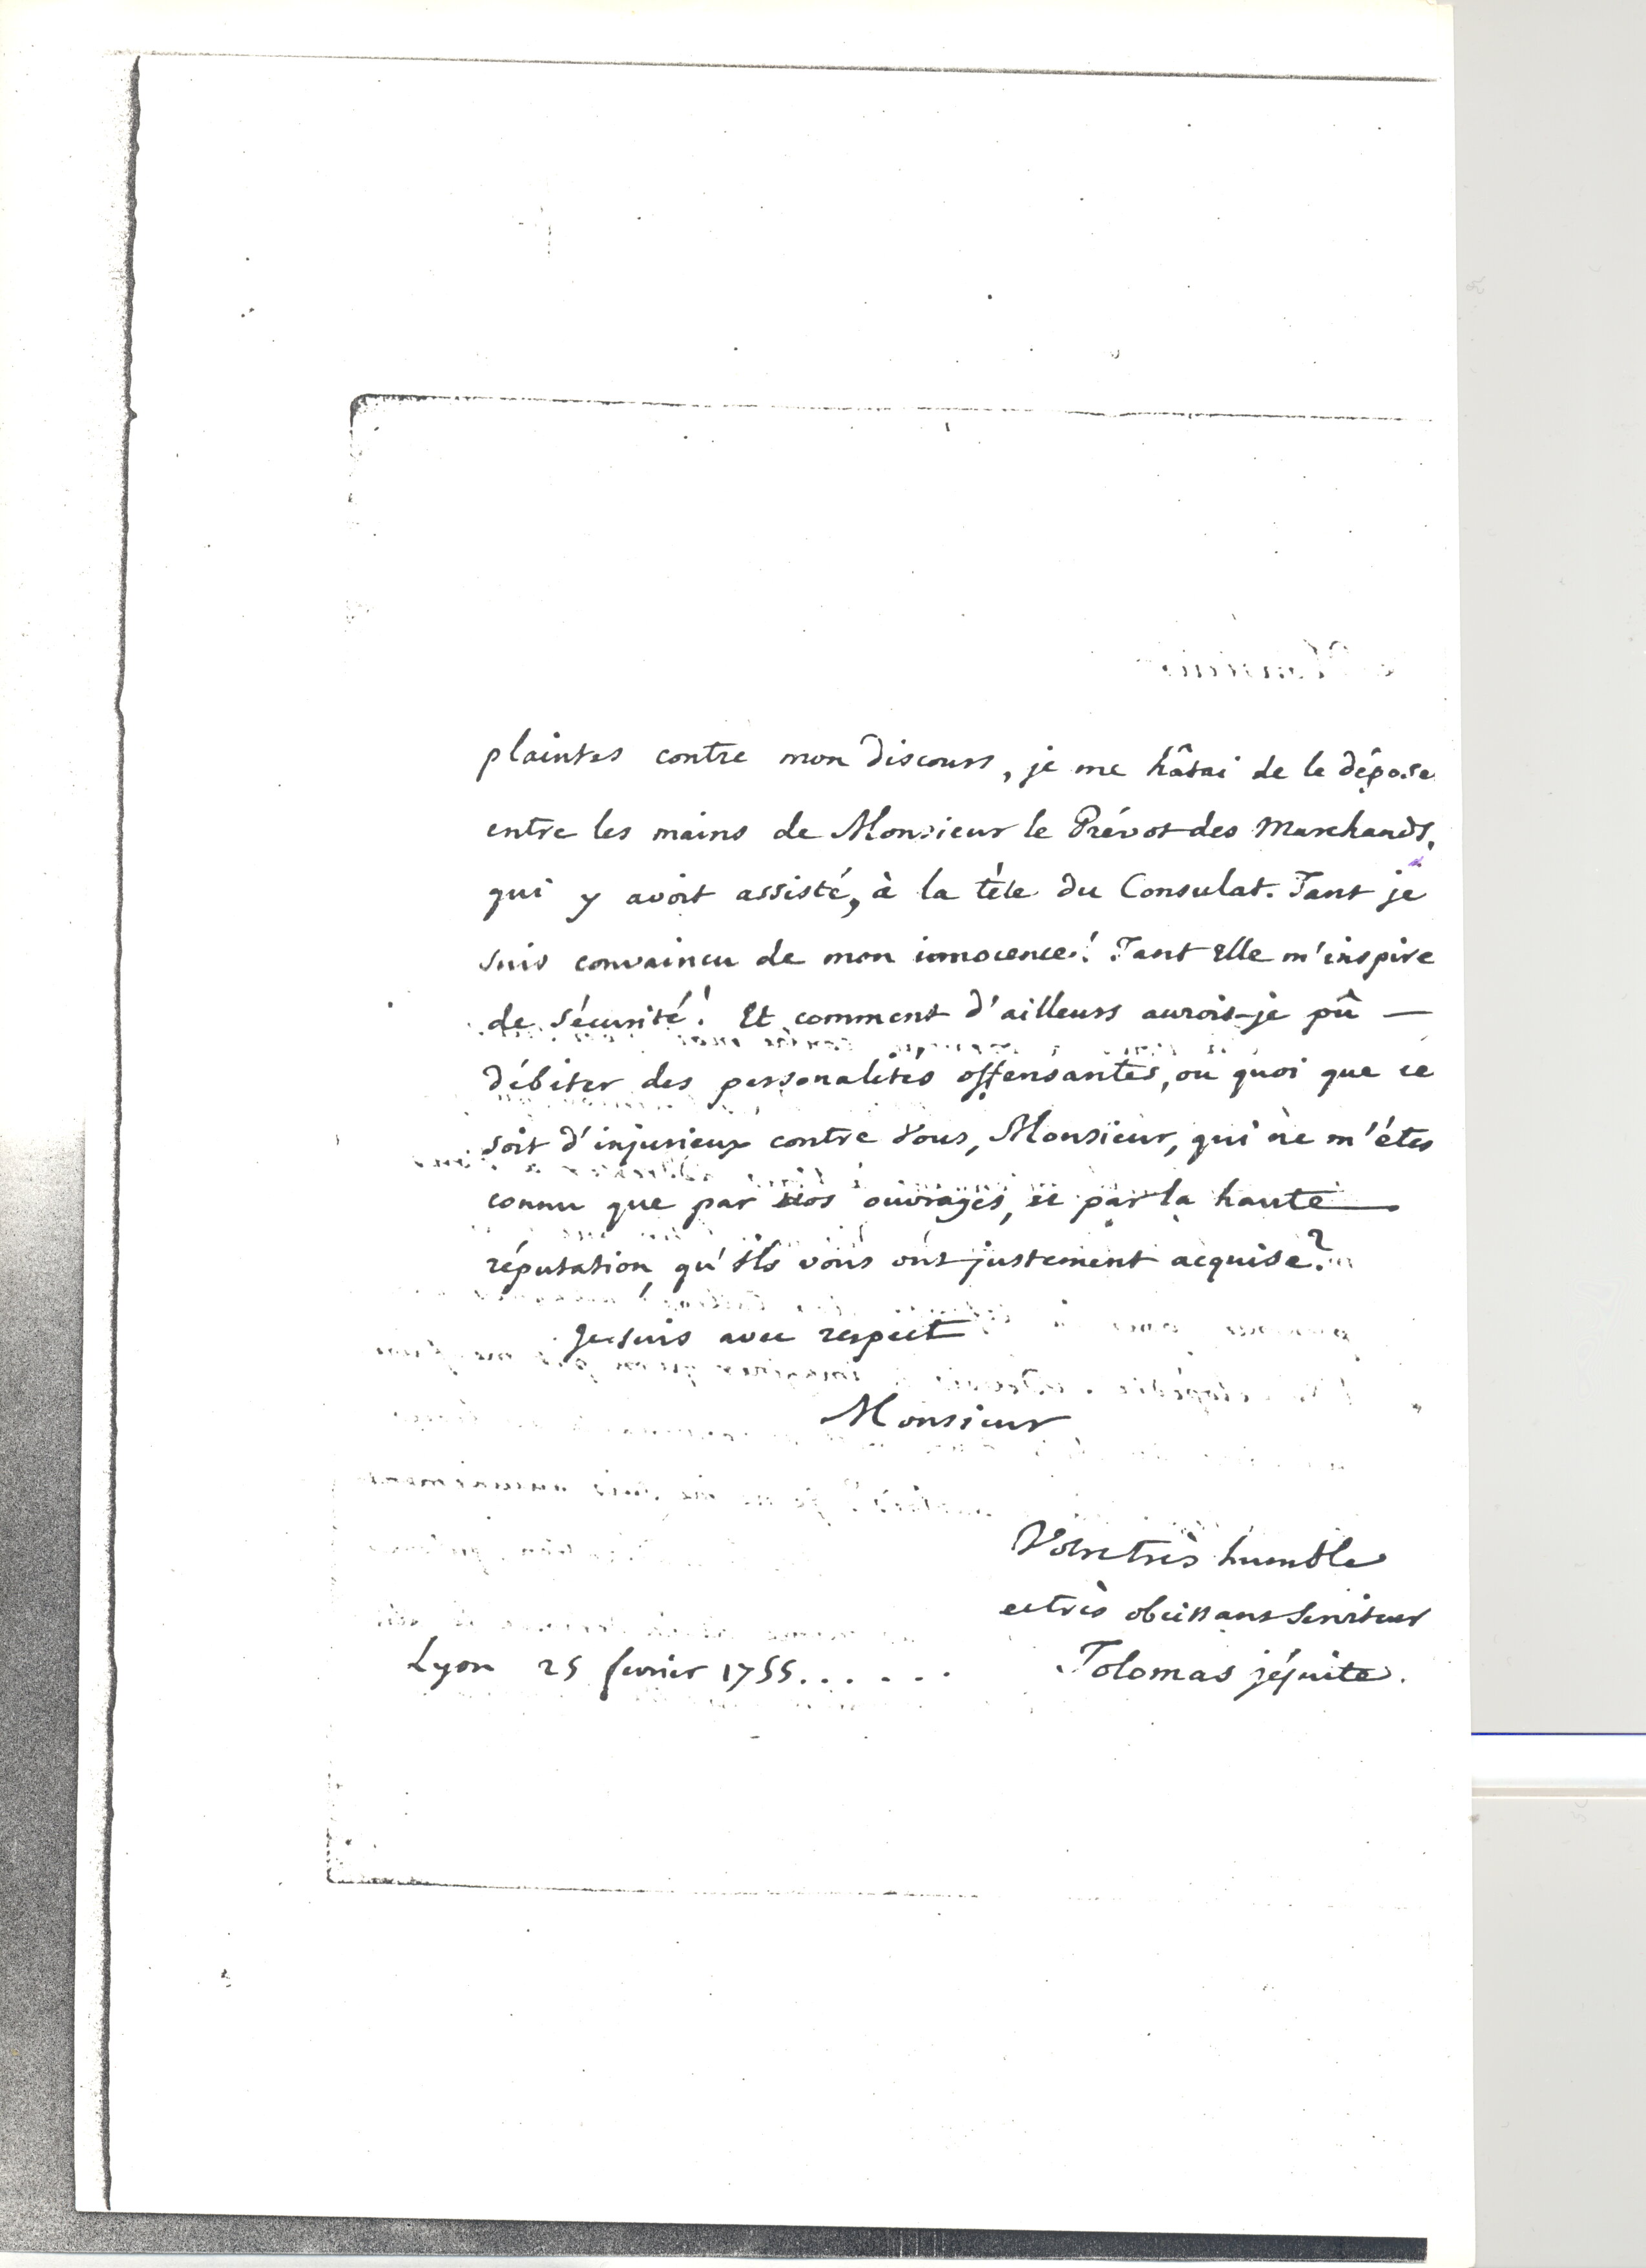 plaintes contre mon discours, je me hâtai de le dépose
entre les mains de Monsieur le Prévot des Marchands,
qui y avoit assisté, à la tête du Consulat. Tant je
suis convaincu de mon innocence! Tant Elle m'inspire
de sécurité! Et comment d'ailleurs aurois-je pû —
débiter des personalités offensantes, ou quoi que ce
soit d'injurieux contre vous, Monsieur, qui ne m'étes
connu que par vos ouvrages, et par la haute
réputation, qu'ils vous ont justement acquise?
Je suis avec respect
Monsieur
Votre très humble
et très obeissant serviteur
Lyon 25 fevrier 1755...... Tolomas jésuite.